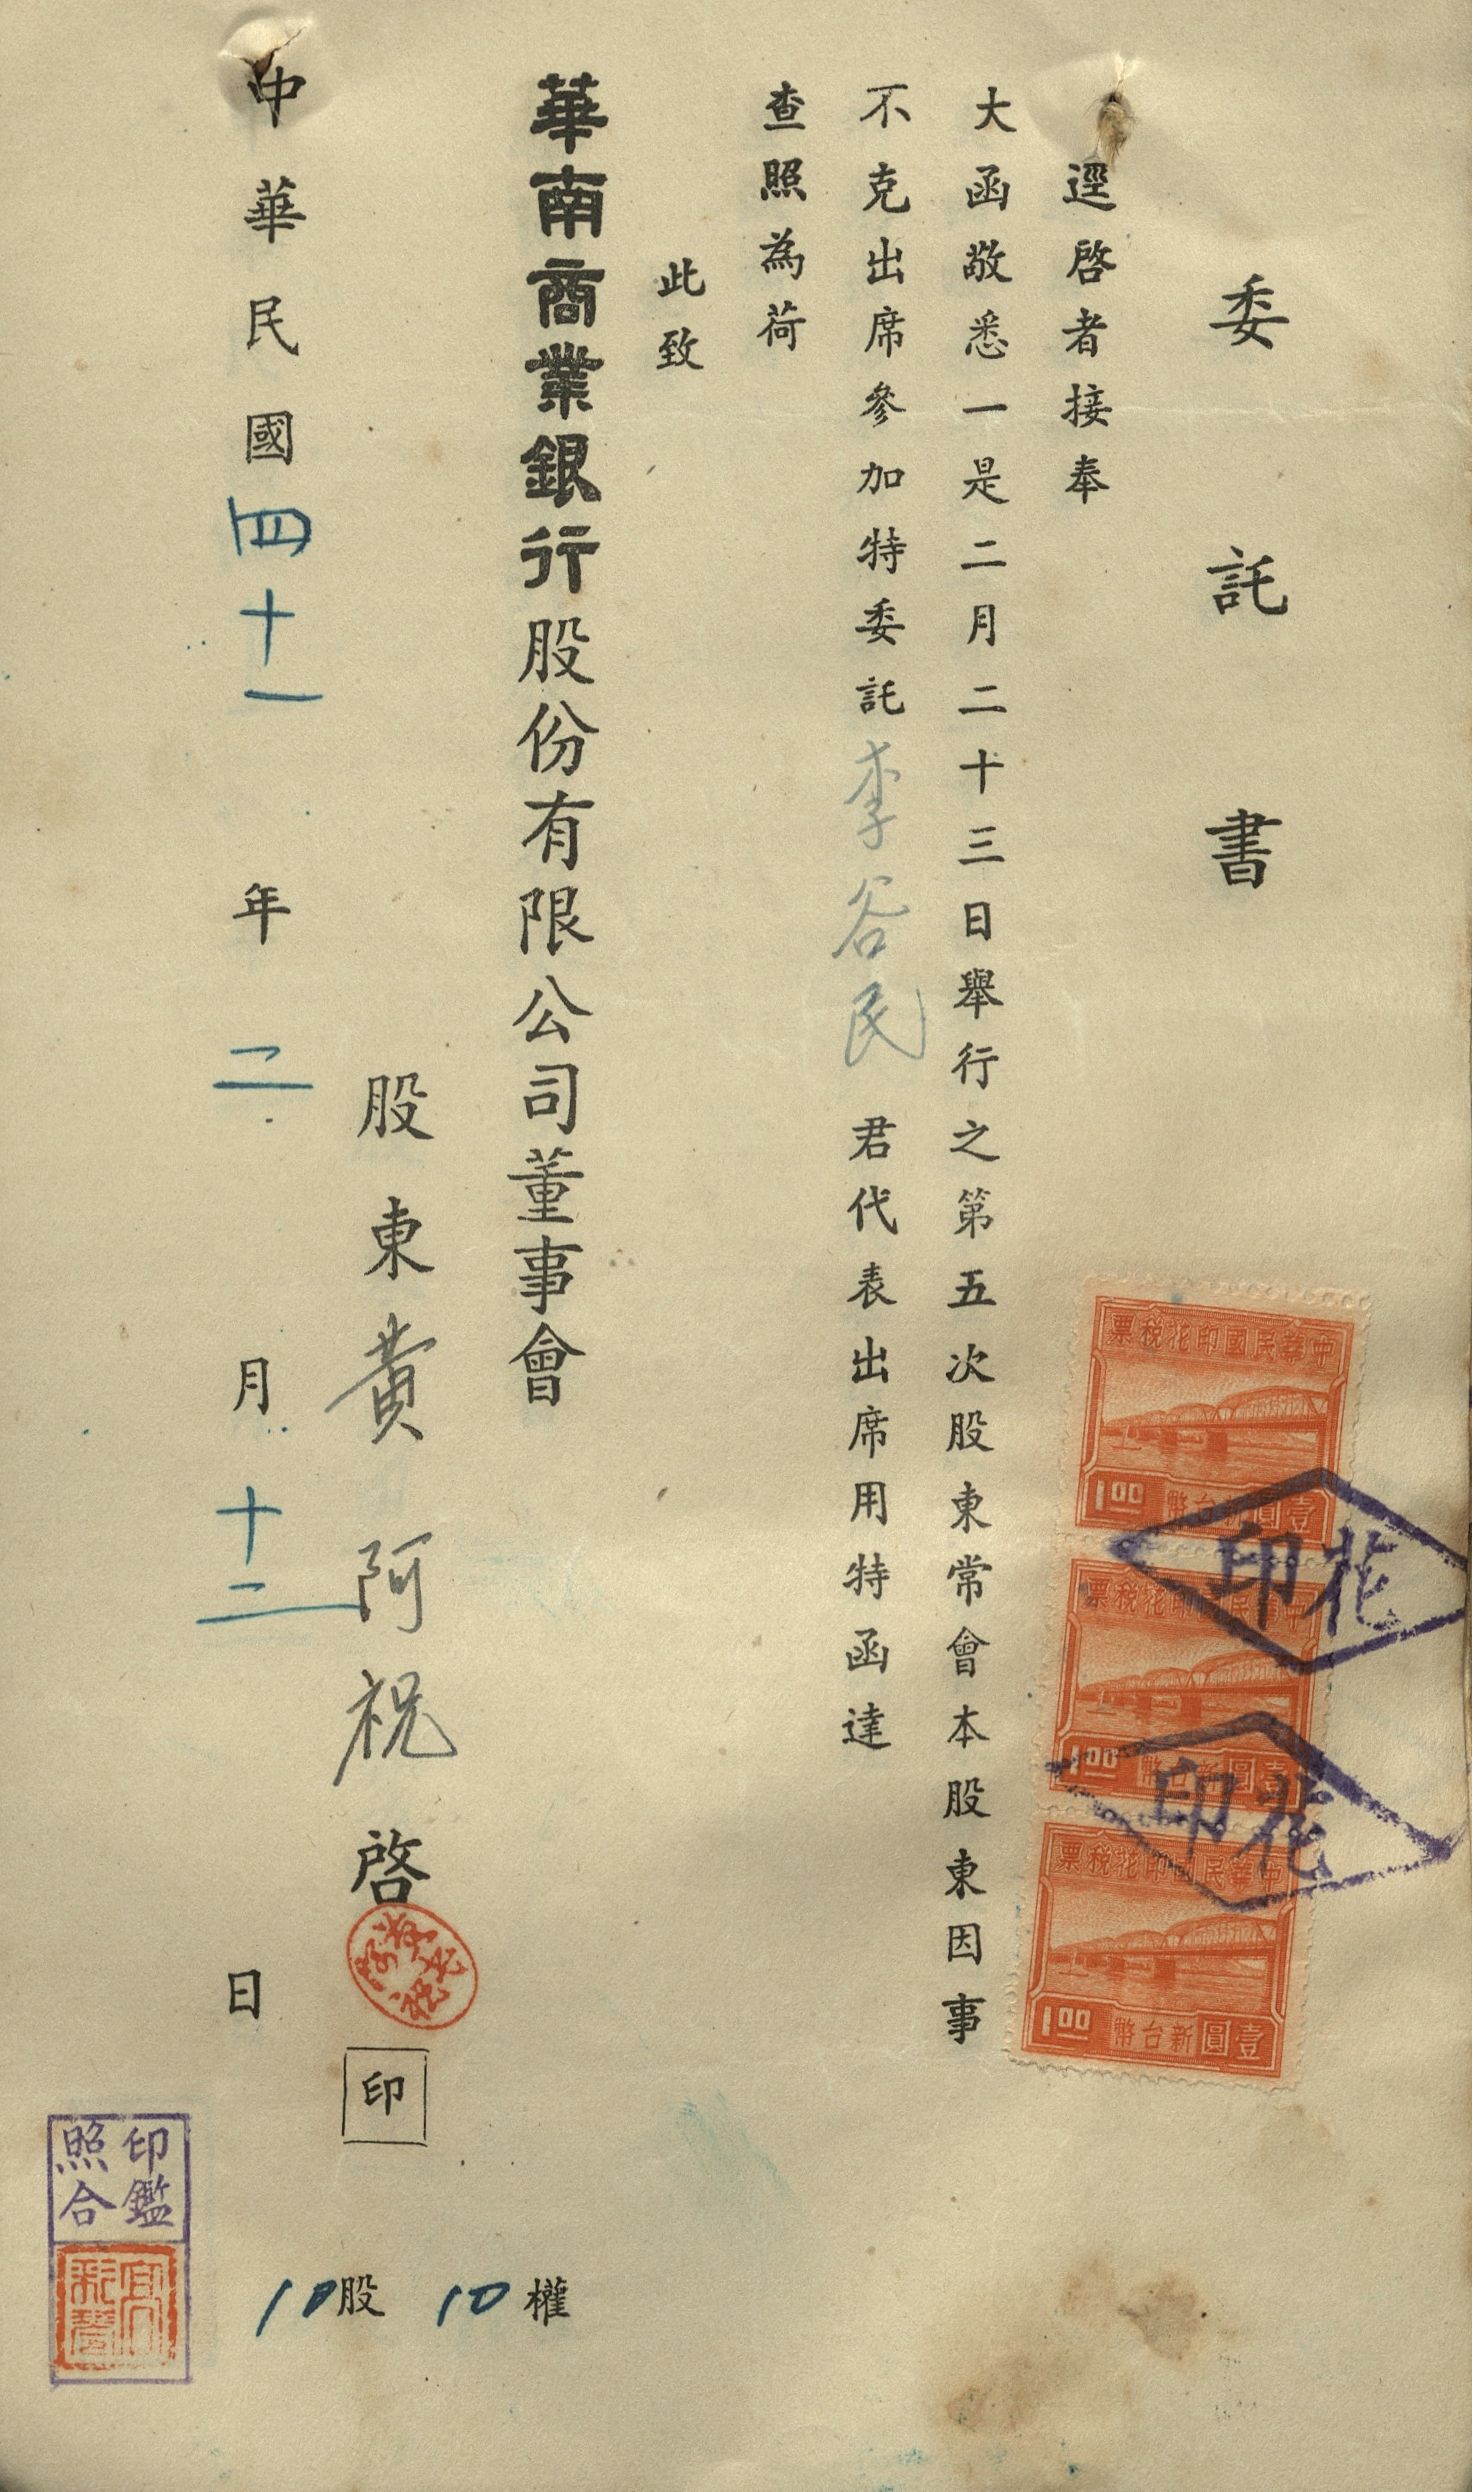 委託書
逕啓者接奉
大函敬悉一是二月二十三日舉行之第五次股東常會本股東因事
不克出席參加特委託李谷民君代表出席用特函達
查照為荷
此致
華南商業銀行股份有限公司董事會
股東黄阿祝啓
印
中華民國四十一年二月十二日
10股 10權
印鑑
照合
中華民國印花稅票
壹圓新台幣
1.00
花印
中華民國印花稅票
壹圓新台幣
1.00
花印
中華民國印花稅票
壹圓新台幣
1.00